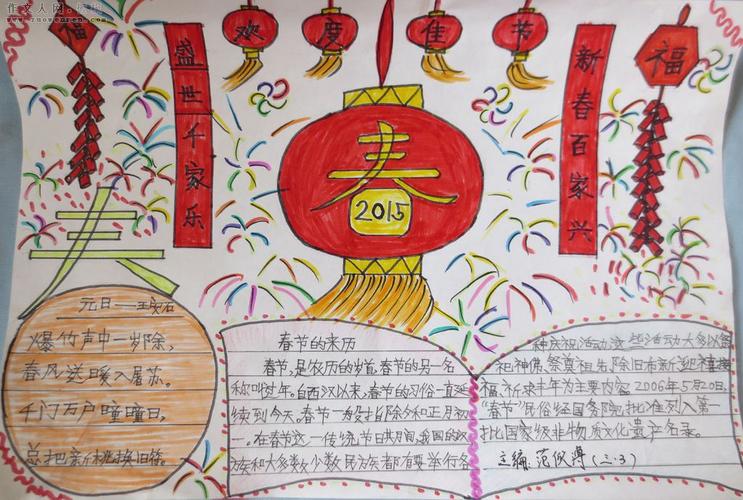 作文人网
www.zuowenren.com
欢度佳节
福
盛世千家乐
新春百家兴
福
春
2015
春
元日——王安石
爆竹声中一岁除，
春风送暖入屠苏。
千门万户曈曈日，
总把新桃换旧符。
春节的来历
春节，是农历的岁首，春节的另一名
称叫过年。自西汉以来，春节的习俗一直延
续到今天。春节一般指除夕和正月初
一。在春节这一传统节日期间，我国的汉
族和大多数少数民族都有要举行各
种庆祝活动，这些活动大多以祭
祀神佛、祭奠祖先、除旧布新、迎禧接
福、祈求丰年为主要内容。2006年5月20日，
“春节”民俗经国务院批准列入第一
批国家级非物质文化遗产名录。
主编：范仪（三.3）